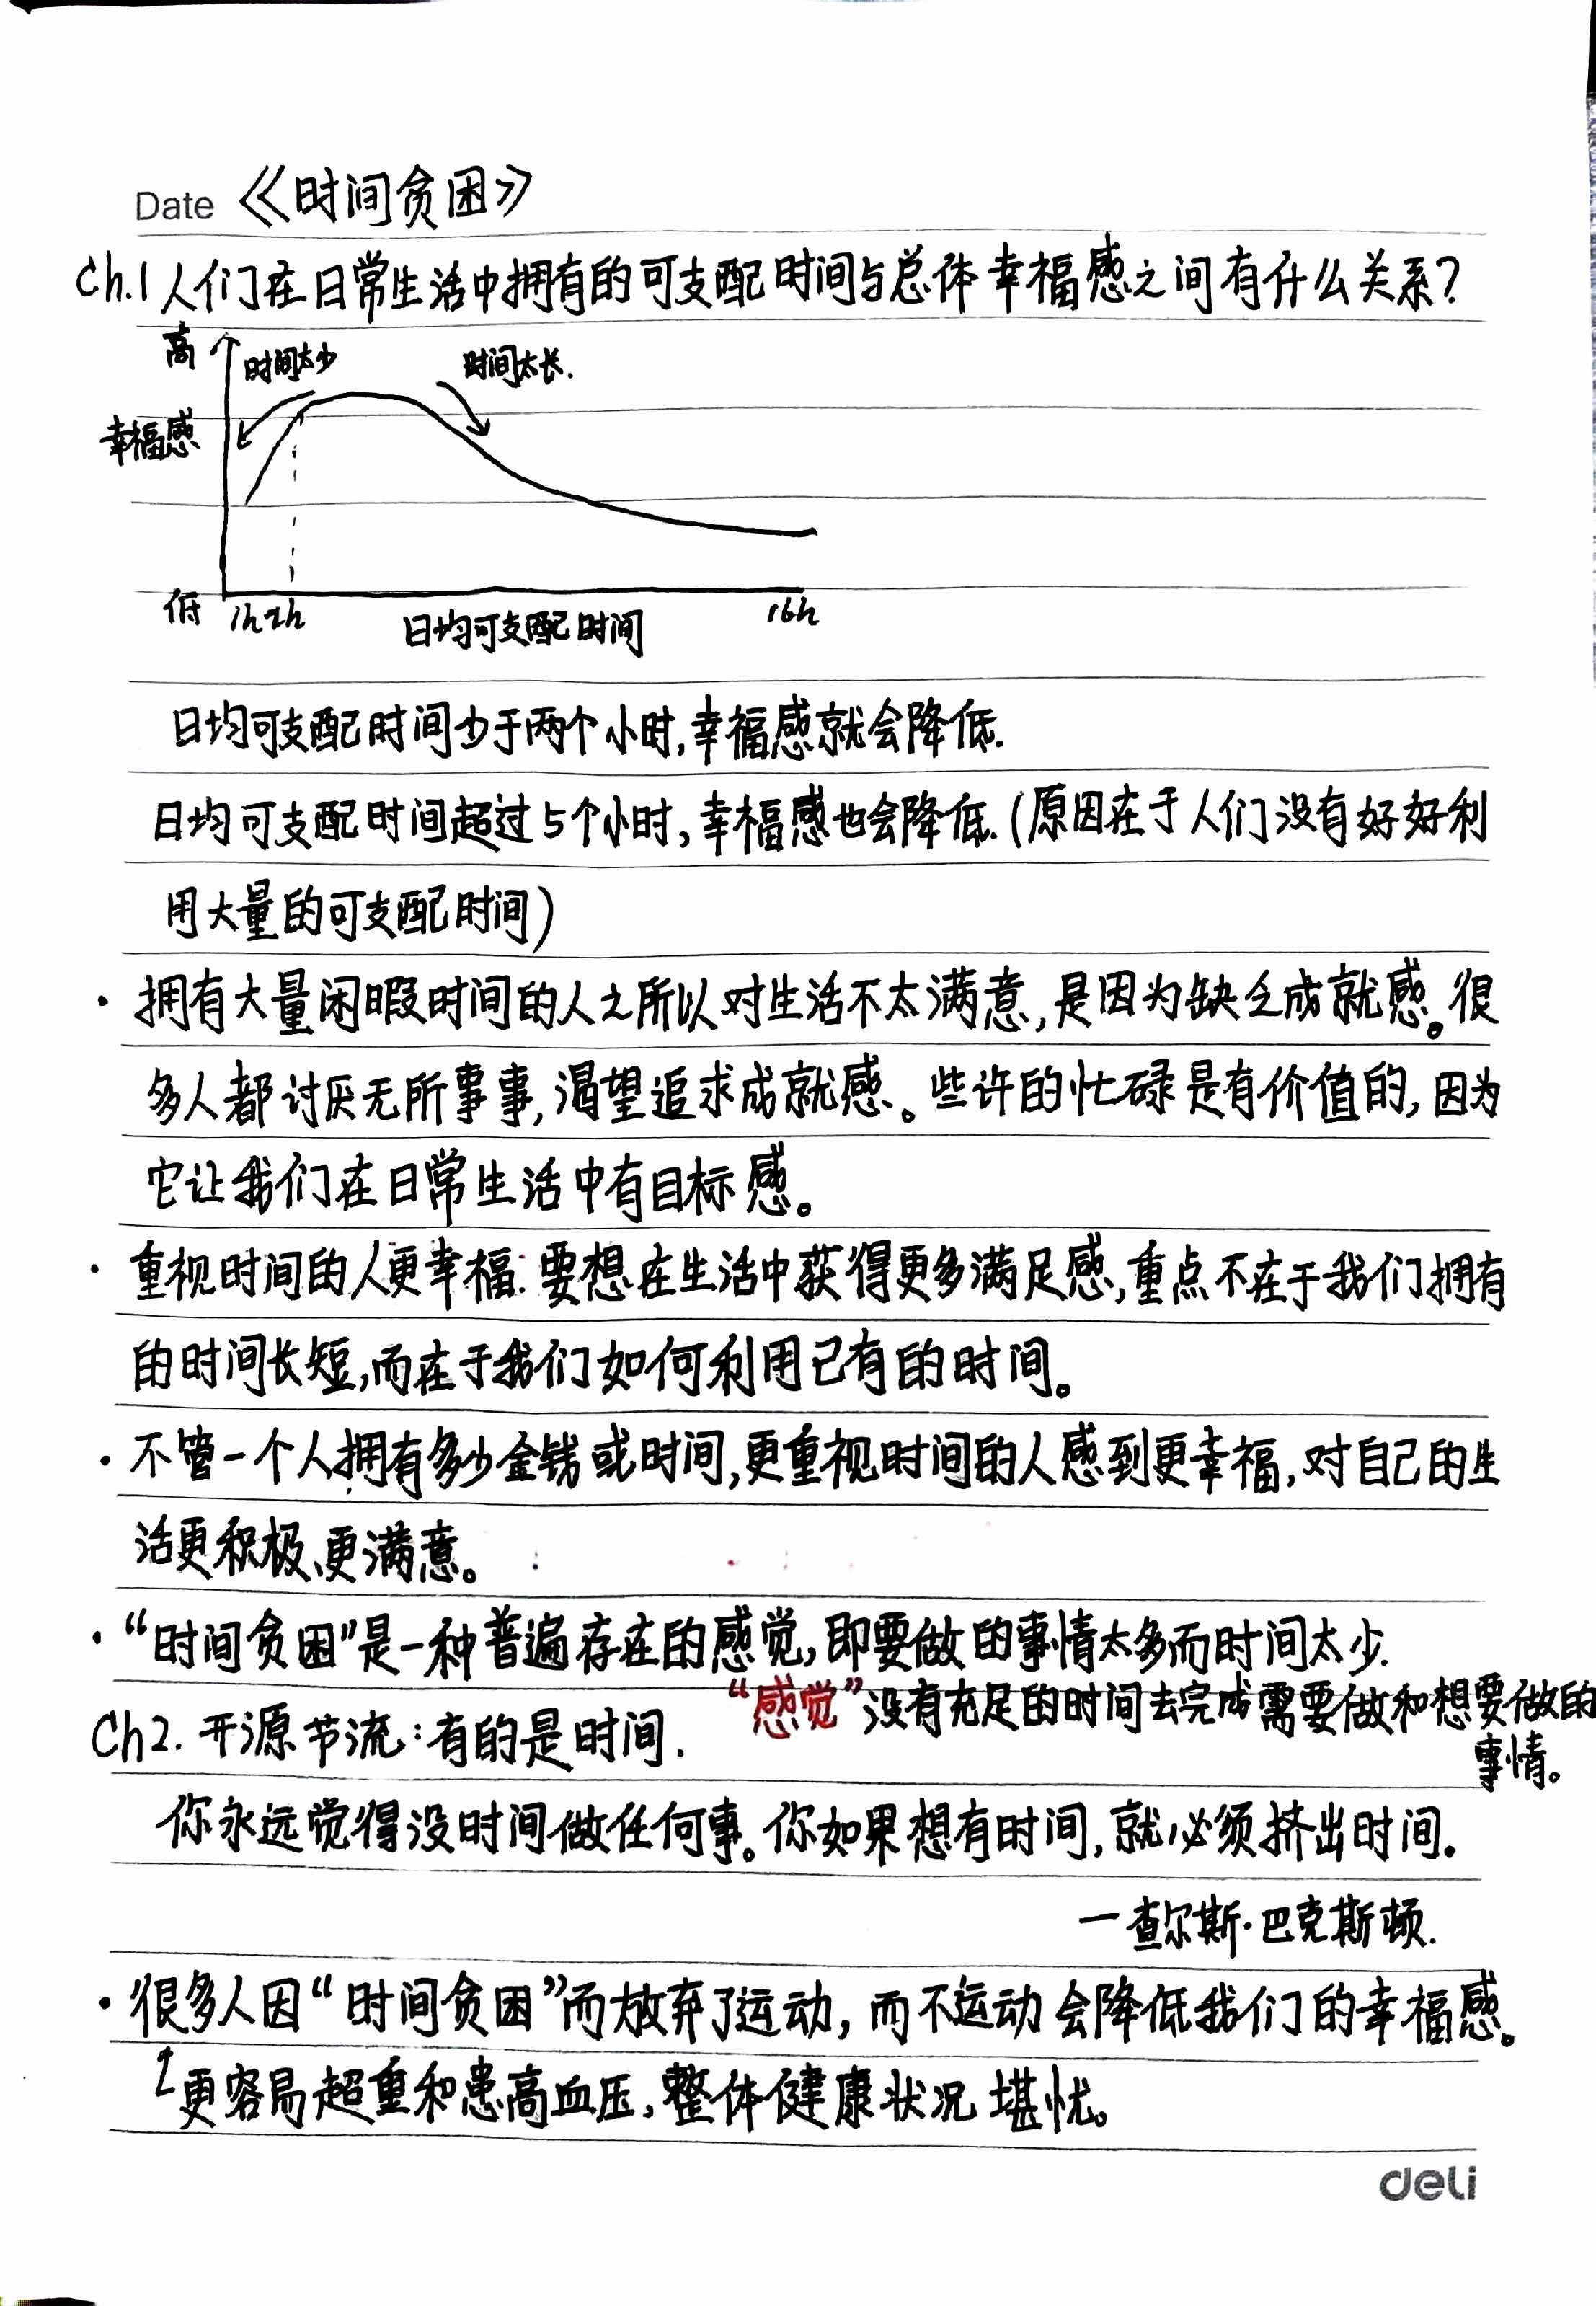 Date 《时间贫困》
Ch.1 人们在日常生活中拥有的可支配时间与总体幸福感之间有什么关系?
高
时间太少
时间太长.
幸福感
低 1h 2h
日均可支配时间
16h
日均可支配时间少于两个小时,幸福感就会降低.
日均可支配时间超过5个小时,幸福感也会降低.(原因在于人们没有好好利
用大量的可支配时间)
· 拥有大量闲暇时间的人之所以对生活不太满意,是因为缺乏成就感。很
多人都讨厌无所事事,渴望追求成就感。些许的忙碌是有价值的,因为
它让我们在日常生活中有目标感。
· 重视时间的人更幸福.要想在生活中获得更多满足感,重点不在于我们拥有
的时间长短,而在于我们如何利用已有的时间。
· 不管一个人拥有多少金钱或时间,更重视时间的人感到更幸福,对自己的生
活更积极、更满意。
· “时间贫困”是一种普遍存在的感觉,即要做的事情太多而时间太少.
“感觉”没有充足的时间去完成需要做和想要做的
事情。
Ch2. 开源节流:有的是时间.
你永远觉得没时间做任何事。你如果想有时间,就必须挤出时间.
—查尔斯·巴克斯顿.
· 很多人因“时间贫困”而放弃了运动,而不运动会降低我们的幸福感。
更容易超重和患高血压,整体健康状况堪忧。
deli